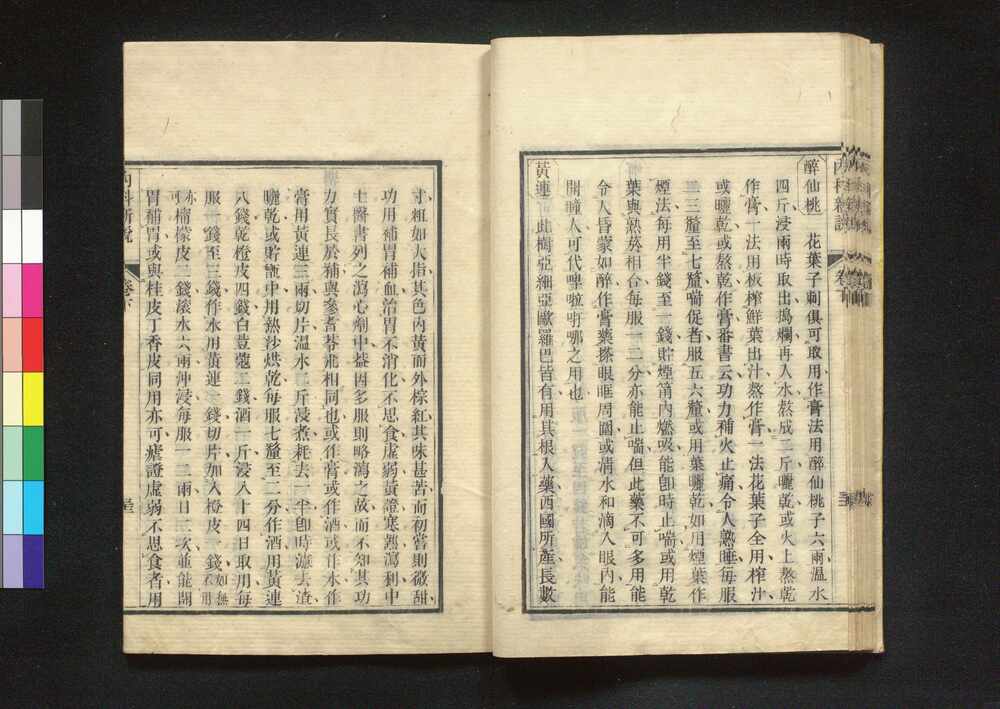 醉仙桃 花葉子刺俱可取用作膏法用醉仙桃子六兩溫水
四斤浸兩時取出搗爛再入水熬成二斤曬乾或火上熬乾
作膏一法用板榨鮮葉出汁熬作膏一法花葉子全用榨汁
或曬乾或熬乾作膏番書云功力補火止痛令人熟睡每服
二三釐至七釐喘促者服五六釐或用葉曬乾如用煙葉作
煙法每用半錢至一錢貯煙筩內燃吸能卽時止喘或用乾
葉與熟菸相合每服一二分亦能止喘但此藥不可多用能
令人昏蒙如醉作膏藥搽眼眶周圍或清水和滴入眼內能
開瞳人可代嗶啦哪之用也
黃連 此樹亞細亞歐羅巴皆有用其根入藥西國所產長數
寸粗如大指其色內黃而外棕紅其味甚苦而初嘗則微甜
功用補胃補血治胃不消化不思食虛弱黃證寒熱瀉利中
土醫書列之瀉心劑中益因多服則略瀉之故而不知其功
力實長於補與參蓍苓朮相同也或作膏或作酒或作水作
膏用黃連三兩切片溫水二斤浸煮耗去一半卽時濾去渣
曬乾或貯甑中用熱沙烘乾每服七釐至二分作酒用黃連
八錢乾橙皮四錢白荳蔻二錢酒一斤浸八十四日取用每
服一錢至三錢作水用黃連一錢切片加入橙皮一錢如無
檸檬皮二錢滾水六兩沖浸每服一二兩日三次並能開
胃補胃或與桂皮丁香皮同用亦可瘧證虛弱不思食者用
內科新說 卷下